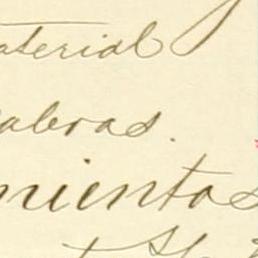 aterial
abras.
mientos